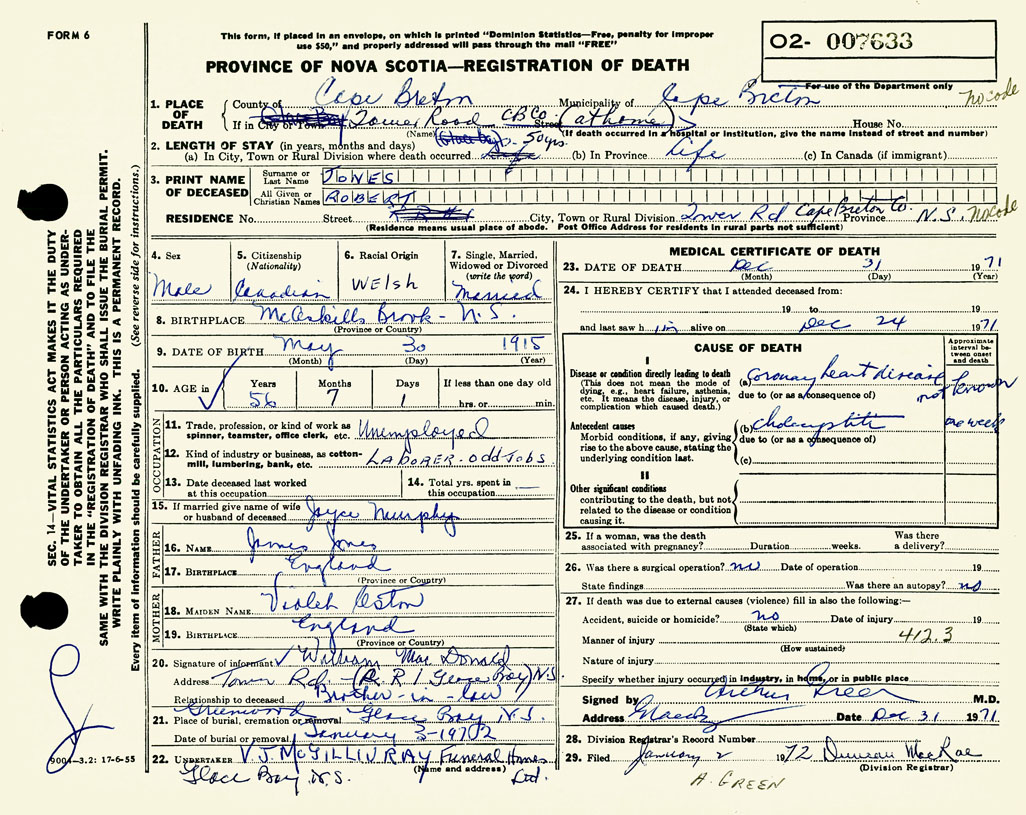 FORM 6
This form, if placed in an envelope, on which is printed "Dominion Statistics—Free, penalty for improper
use $50," and properly addressed will pass through the mail "FREE"
02- 007633
PROVINCE OF NOVA SCOTIA—REGISTRATION OF DEATH
For use of the Department only
no code
1. PLACE OF DEATH
County of Cape Breton Municipality of Cape Breton
If in City or Town Glace Bay Tower Road C B Co. Street (at home) House No.
(Name) (If death occurred in a hospital or institution, give the name instead of street and number)
2. LENGTH OF STAY (in years, months and days) 50 yrs.
(a) In City, Town or Rural Division where death occurred Life (b) In Province Life (c) In Canada (if immigrant)
3. PRINT NAME OF DECEASED
Surname or Last Name JONES
All Given or Christian Names ROBERT
RESIDENCE No. Street City, Town or Rural Division Tower Rd Cape Breton Co. Province N.S. no code
(Residence means usual place of abode. Post Office Address for residents in rural parts not sufficient)
4. Sex Male
5. Citizenship (Nationality) Canadian
6. Racial Origin WELSH
7. Single, Married, Widowed or Divorced (write the word) Married
8. BIRTHPLACE McAskills Brook - N.S.
(Province or Country)
9. DATE OF BIRTH May 30 1915
(Month) (Day) (Year)
10. AGE in Years 56 Months 7 Days 1 If less than one day old hrs. or min.
OCCUPATION
11. Trade, profession, or kind of work as spinner, teamster, office clerk, etc. Unemployed
12. Kind of industry or business, as cotton-mill, lumbering, bank, etc. LABORER - ODD JOBS
13. Date deceased last worked at this occupation
14. Total yrs. spent in this occupation —
15. If married give name of wife or husband of deceased Joyce Murphy
FATHER
16. NAME James Jones
17. BIRTHPLACE England
(Province or Country)
MOTHER
18. MAIDEN NAME Violet
19. BIRTHPLACE England
(Province or Country)
20. Signature of informant William Mac Donald
Address Tower Rd - (R.R 1 Glace Bay) N.S
Relationship to deceased Brother-in-law
Greenwood
21. Place of burial, cremation or removal Glace Bay N.S.
Date of burial or removal January 3-1972
22. UNDERTAKER V.J. McGILLIVRAY Funeral Homes Ltd.
(Name and address)
Glace Bay, N.S.
MEDICAL CERTIFICATE OF DEATH
23. DATE OF DEATH Dec 31 1971
(Month) (Day) (Year)
24. I HEREBY CERTIFY that I attended deceased from:
19 to 19
and last saw him alive on Dec 24 1971
CAUSE OF DEATH
Approximate interval between onset and death
I
Disease or condition directly leading to death
(This does not mean the mode of dying, e.g., heart failure, asthenia, etc. It means the disease, injury, or complication which caused death.)
(a) Coronary heart disease not known
due to (or as a consequence of)
Antecedent causes
Morbid conditions, if any, giving rise to the above cause, stating the underlying condition last.
(b) cholecystitis one week
due to (or as a consequence of)
(c)
II
Other significant conditions
contributing to the death, but not related to the disease or condition causing it.
25. If a woman, was the death associated with pregnancy? Duration weeks. Was there a delivery?
26. Was there a surgical operation? no Date of operation 19
State findings Was there an autopsy? no
27. If death was due to external causes (violence) fill in also the following:—
Accident, suicide or homicide? no Date of injury 19
(State which)
Manner of injury 412.3
(How sustained)
Nature of injury
Specify whether injury occurred in industry, in home, or in public place
Signed by Arthur Green M.D.
Address Date Dec 31 1971
28. Division Registrar's Record Number
29. Filed January 2 1972 Duncan MacRae
(Division Registrar)
A. GREEN
SEC. 14—VITAL STATISTICS ACT MAKES IT THE DUTY
OF THE UNDERTAKER OR PERSON ACTING AS UNDER-
TAKER TO OBTAIN ALL THE PARTICULARS REQUIRED
IN THE "REGISTRATION OF DEATH" AND TO FILE THE
SAME WITH THE DIVISION REGISTRAR WHO SHALL ISSUE THE BURIAL PERMIT.
WRITE PLAINLY WITH UNFADING INK. THIS IS A PERMANENT RECORD.
Every item of information should be carefully supplied. (See reverse side for instructions.)
9004—3.2: 17-6-55